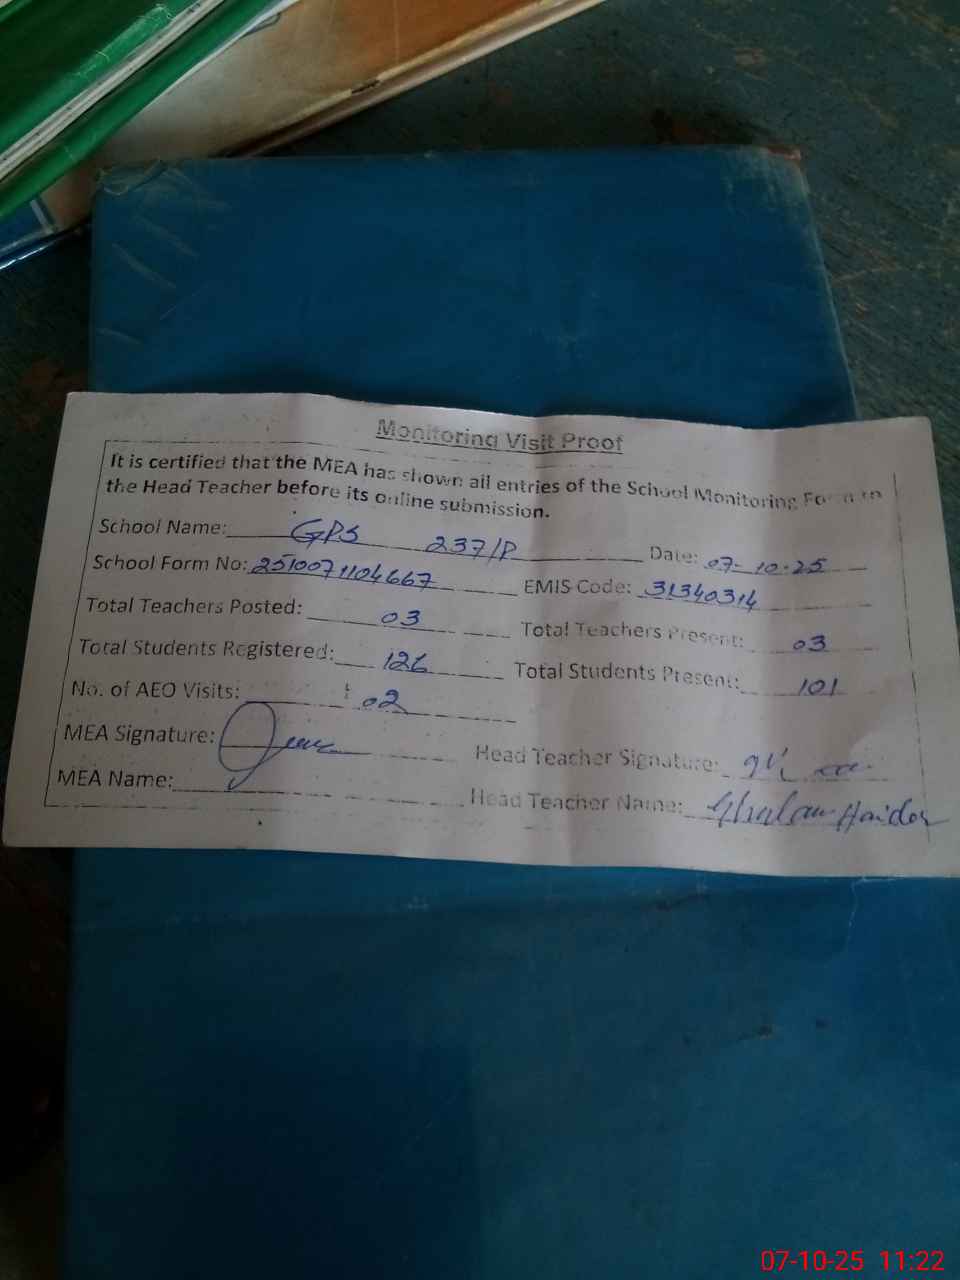 Monitoring Visit Proof
It is certified that the MEA has shown all entries of the School Monitoring Form to
the Head Teacher before its online submission.
School Name: GPS 237/P Date: 07-10-25
School Form No: 2510071104667 EMIS Code: 31340314
Total Teachers Posted: 03 Total Teachers Present: 03
Total Students Registered: 126 Total Students Present: 101
No. of AEO Visits: 02
MEA Signature: Head Teacher Signature:
MEA Name: Head Teacher Name: Ghulam Haider
07-10-25 11:22